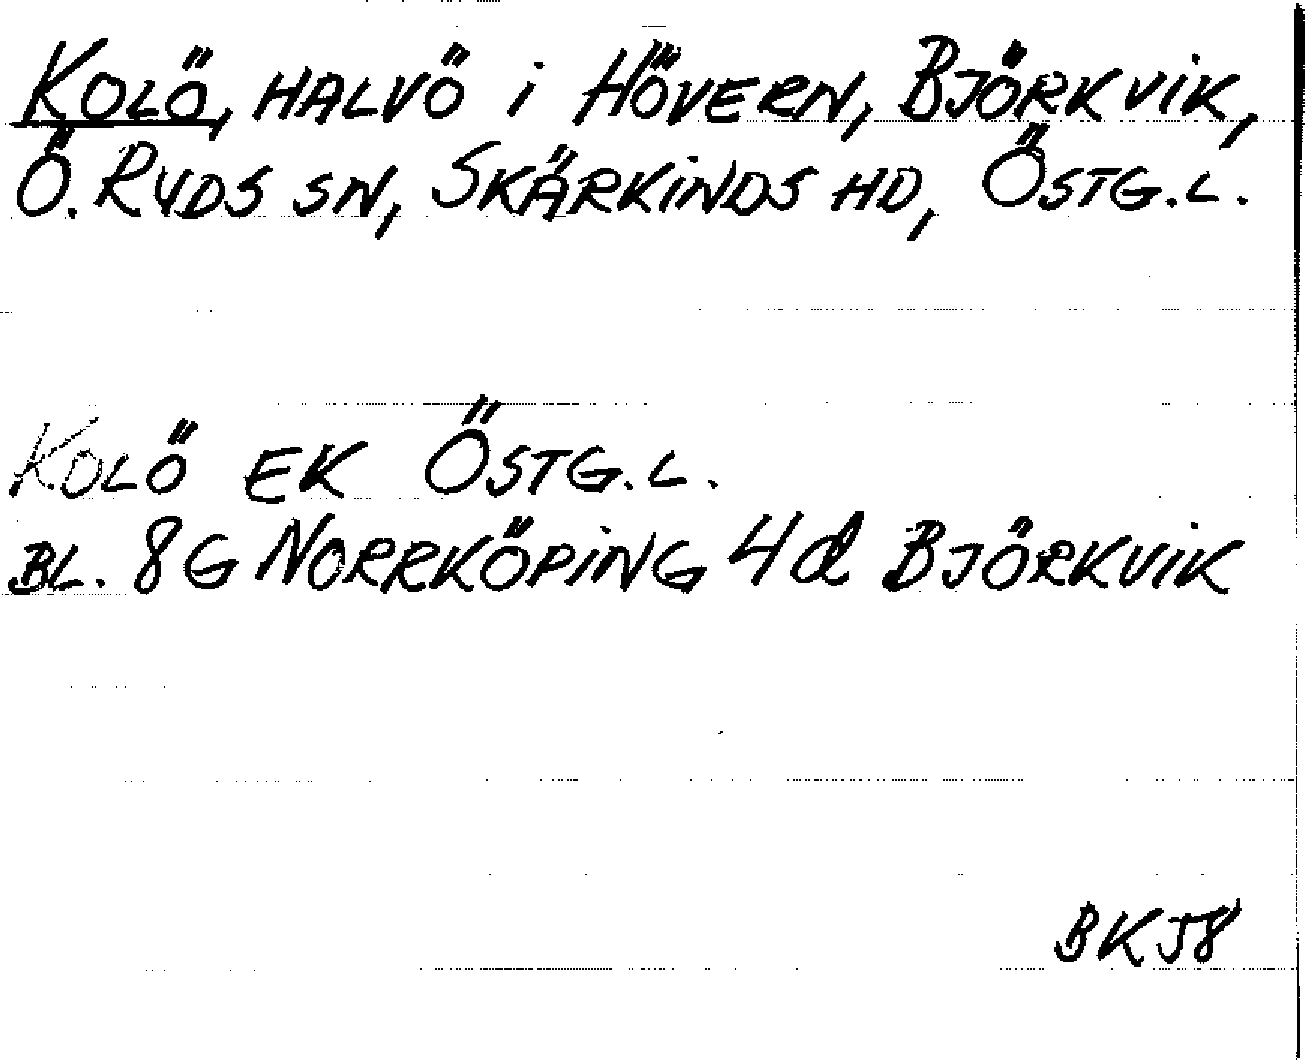 KOLÖ, HALVÖ i HÖVERN, BJÖRKVIK,
Ö. RYDS SN, SKÄRKINDS HD, ÖSTG.L.
KOLÖ EK ÖSTG.L.
BL. 8G NORRKÖPING 4d BJÖRKVIK